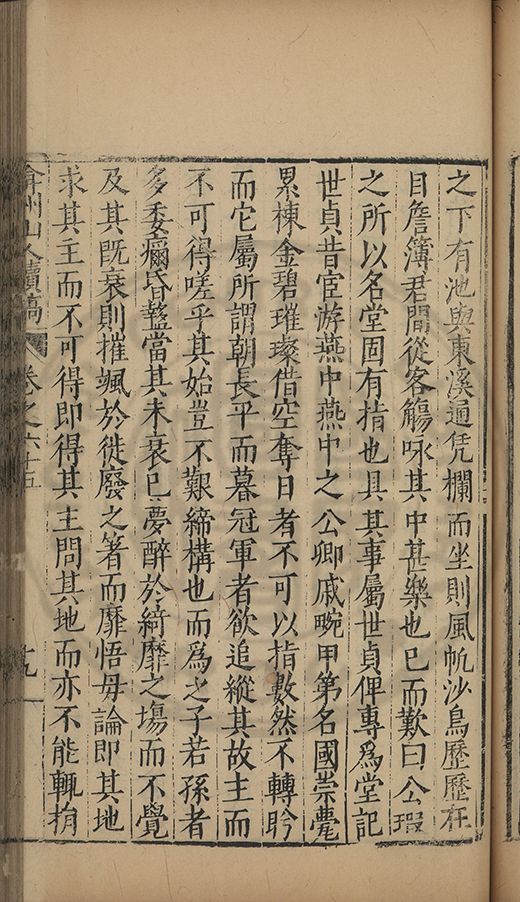 之下有池與東溪通凭欄而坐則風帆沙鳥歷歷在
目詹簿君間從客觴咏其中甚樂也已而歎曰公瑕
之所以名堂固有指也具其事屬世貞俾專為堂記
世貞昔宦游燕中燕中之公卿戚畹甲第名園崇甍
累棟金碧璀璨借空奪日者不可以指數然不轉盻
而它屬所謂朝長平而暮冠軍者欲追縱其故主而
不可得嗟乎其始豈不艱締構也而為之子若孫者
多委瀰昏蠚當其未衰巳夢醉於綺靡之場而不覺
及其既衰則摧颯於徙廢之著而靡悟毋論即其地
求其主而不可得即得其主問其地而亦不能輒指
弇州山人續稿 卷之六十五 十九